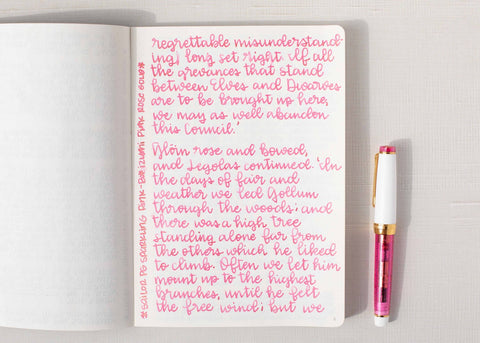 regrettable misunderstand-
ing] long set right. If all
the grevances that stand
between Elves and Dwarves
are to be brought up here,
we may as well abandon
this Council.'
Glóin rose and bowed,
and Legolas continued. 'In
the days of fair and
weather we led Gollum
through the woods; and
there was a high tree
standing alone far from
the others which he liked
to climb. Often we let him
mount up to the highest
branches, until he felt
the free wind; but we
SAILOR PG SPARKLING PINK PINK ROSE GOLD